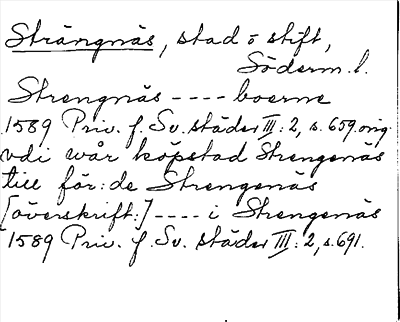 Strängnäs, stad o stift,
Söderm. l.
Strengnäs ---- boerne
1589 Priv. f. Sv. städer III: 2, s. 659. orig.
vdi wår köpstad Strengenäs
till för: de Strengenäs
[överskrift:] ---- i Strengenäs
1589 Priv. f. Sv. städer III: 2, s. 691.